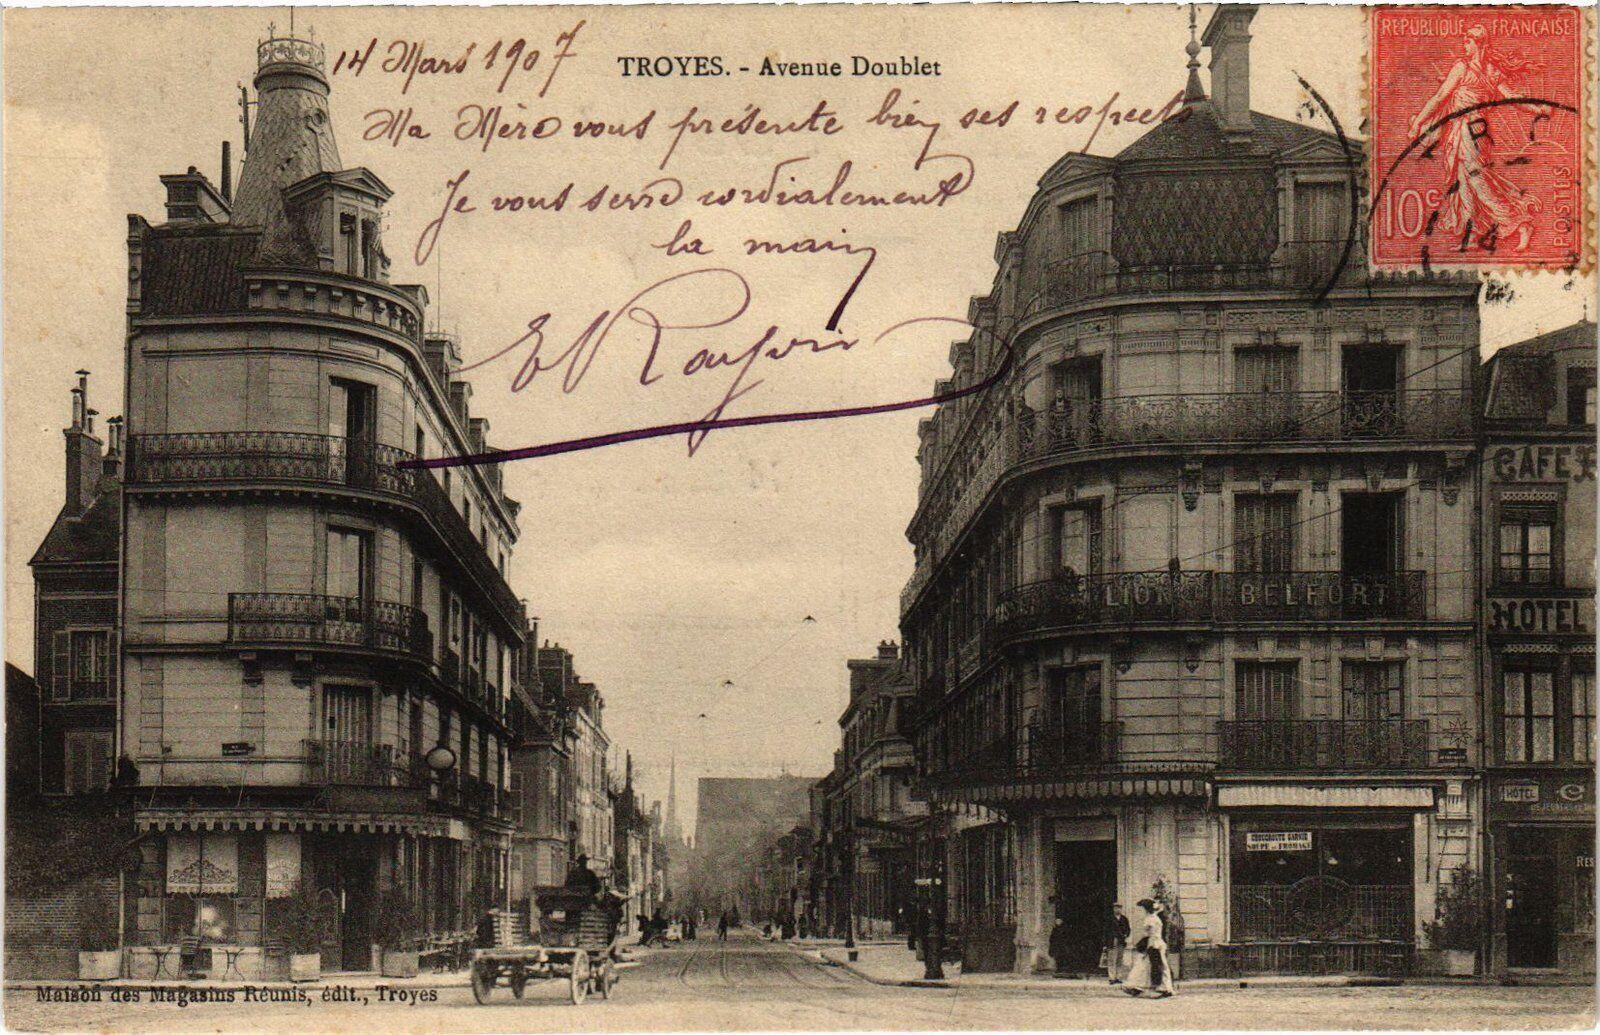 14 Mars 1907
TROYES. - Avenue Doublet
Ma Mère vous présente bien ses respects
Je vous serre cordialement
la main
REPUBLIQUE FRANÇAISE
10c
POSTES
14
CAFE
LION BELFORT
HOTEL
HOTEL
CHOUCROUTE GARNIE
SOUPE AU FROMAGE
RES
Maison des Magasins Réunis, édit., Troyes